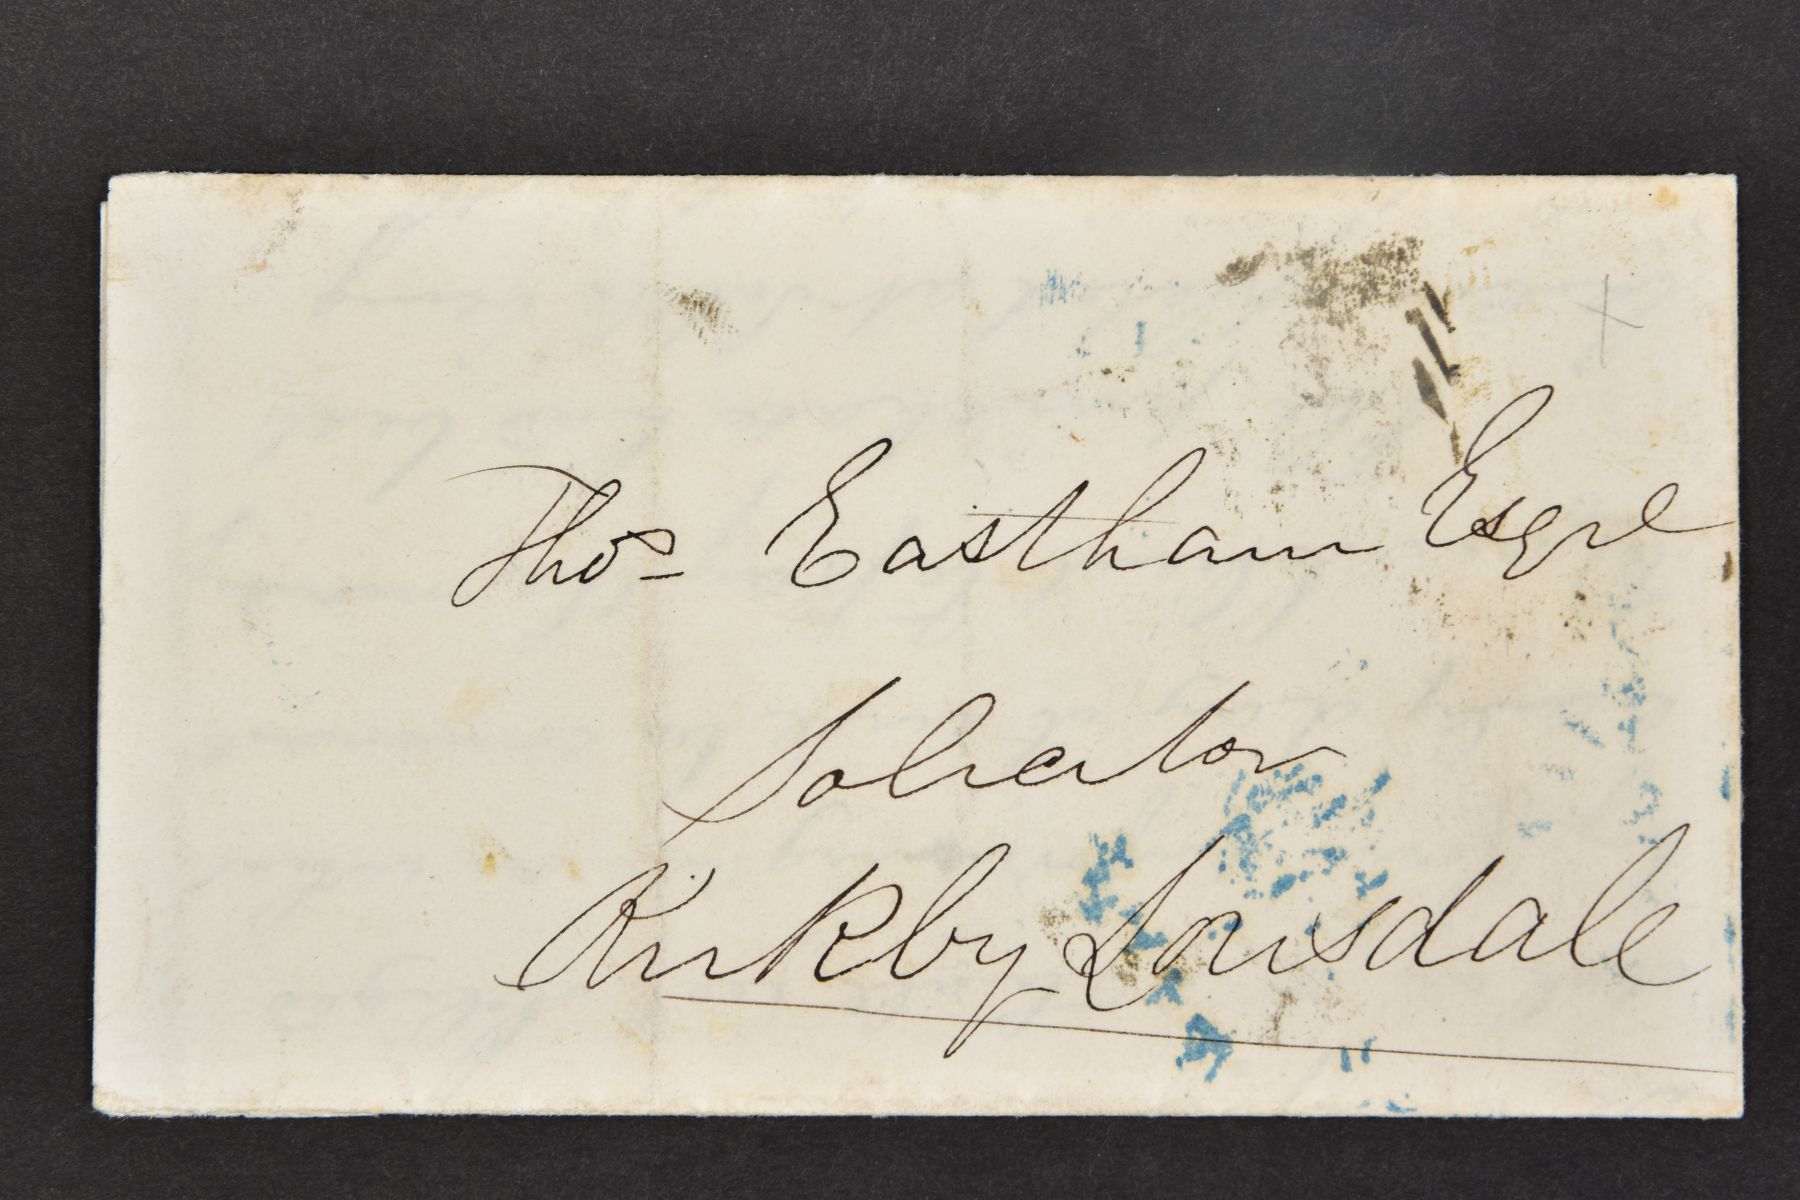 Thos Eastham Esqre
Solicitor
Kirkby Lonsdale